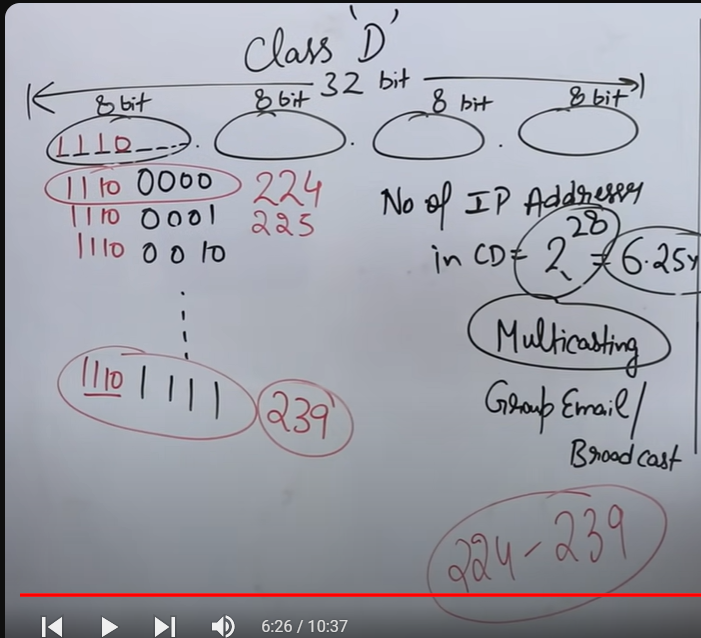 Class 'D'
32 bit
8 bit 8 bit 8 bit 8 bit
1110----
1110 0000 224
1110 0001 225
1110 0010
1110 1111 239
No of IP Addresses
in CD = 2^28 = 6.25%
Multicasting
Group Email/
Broadcast
224-239
6:26 / 10:37